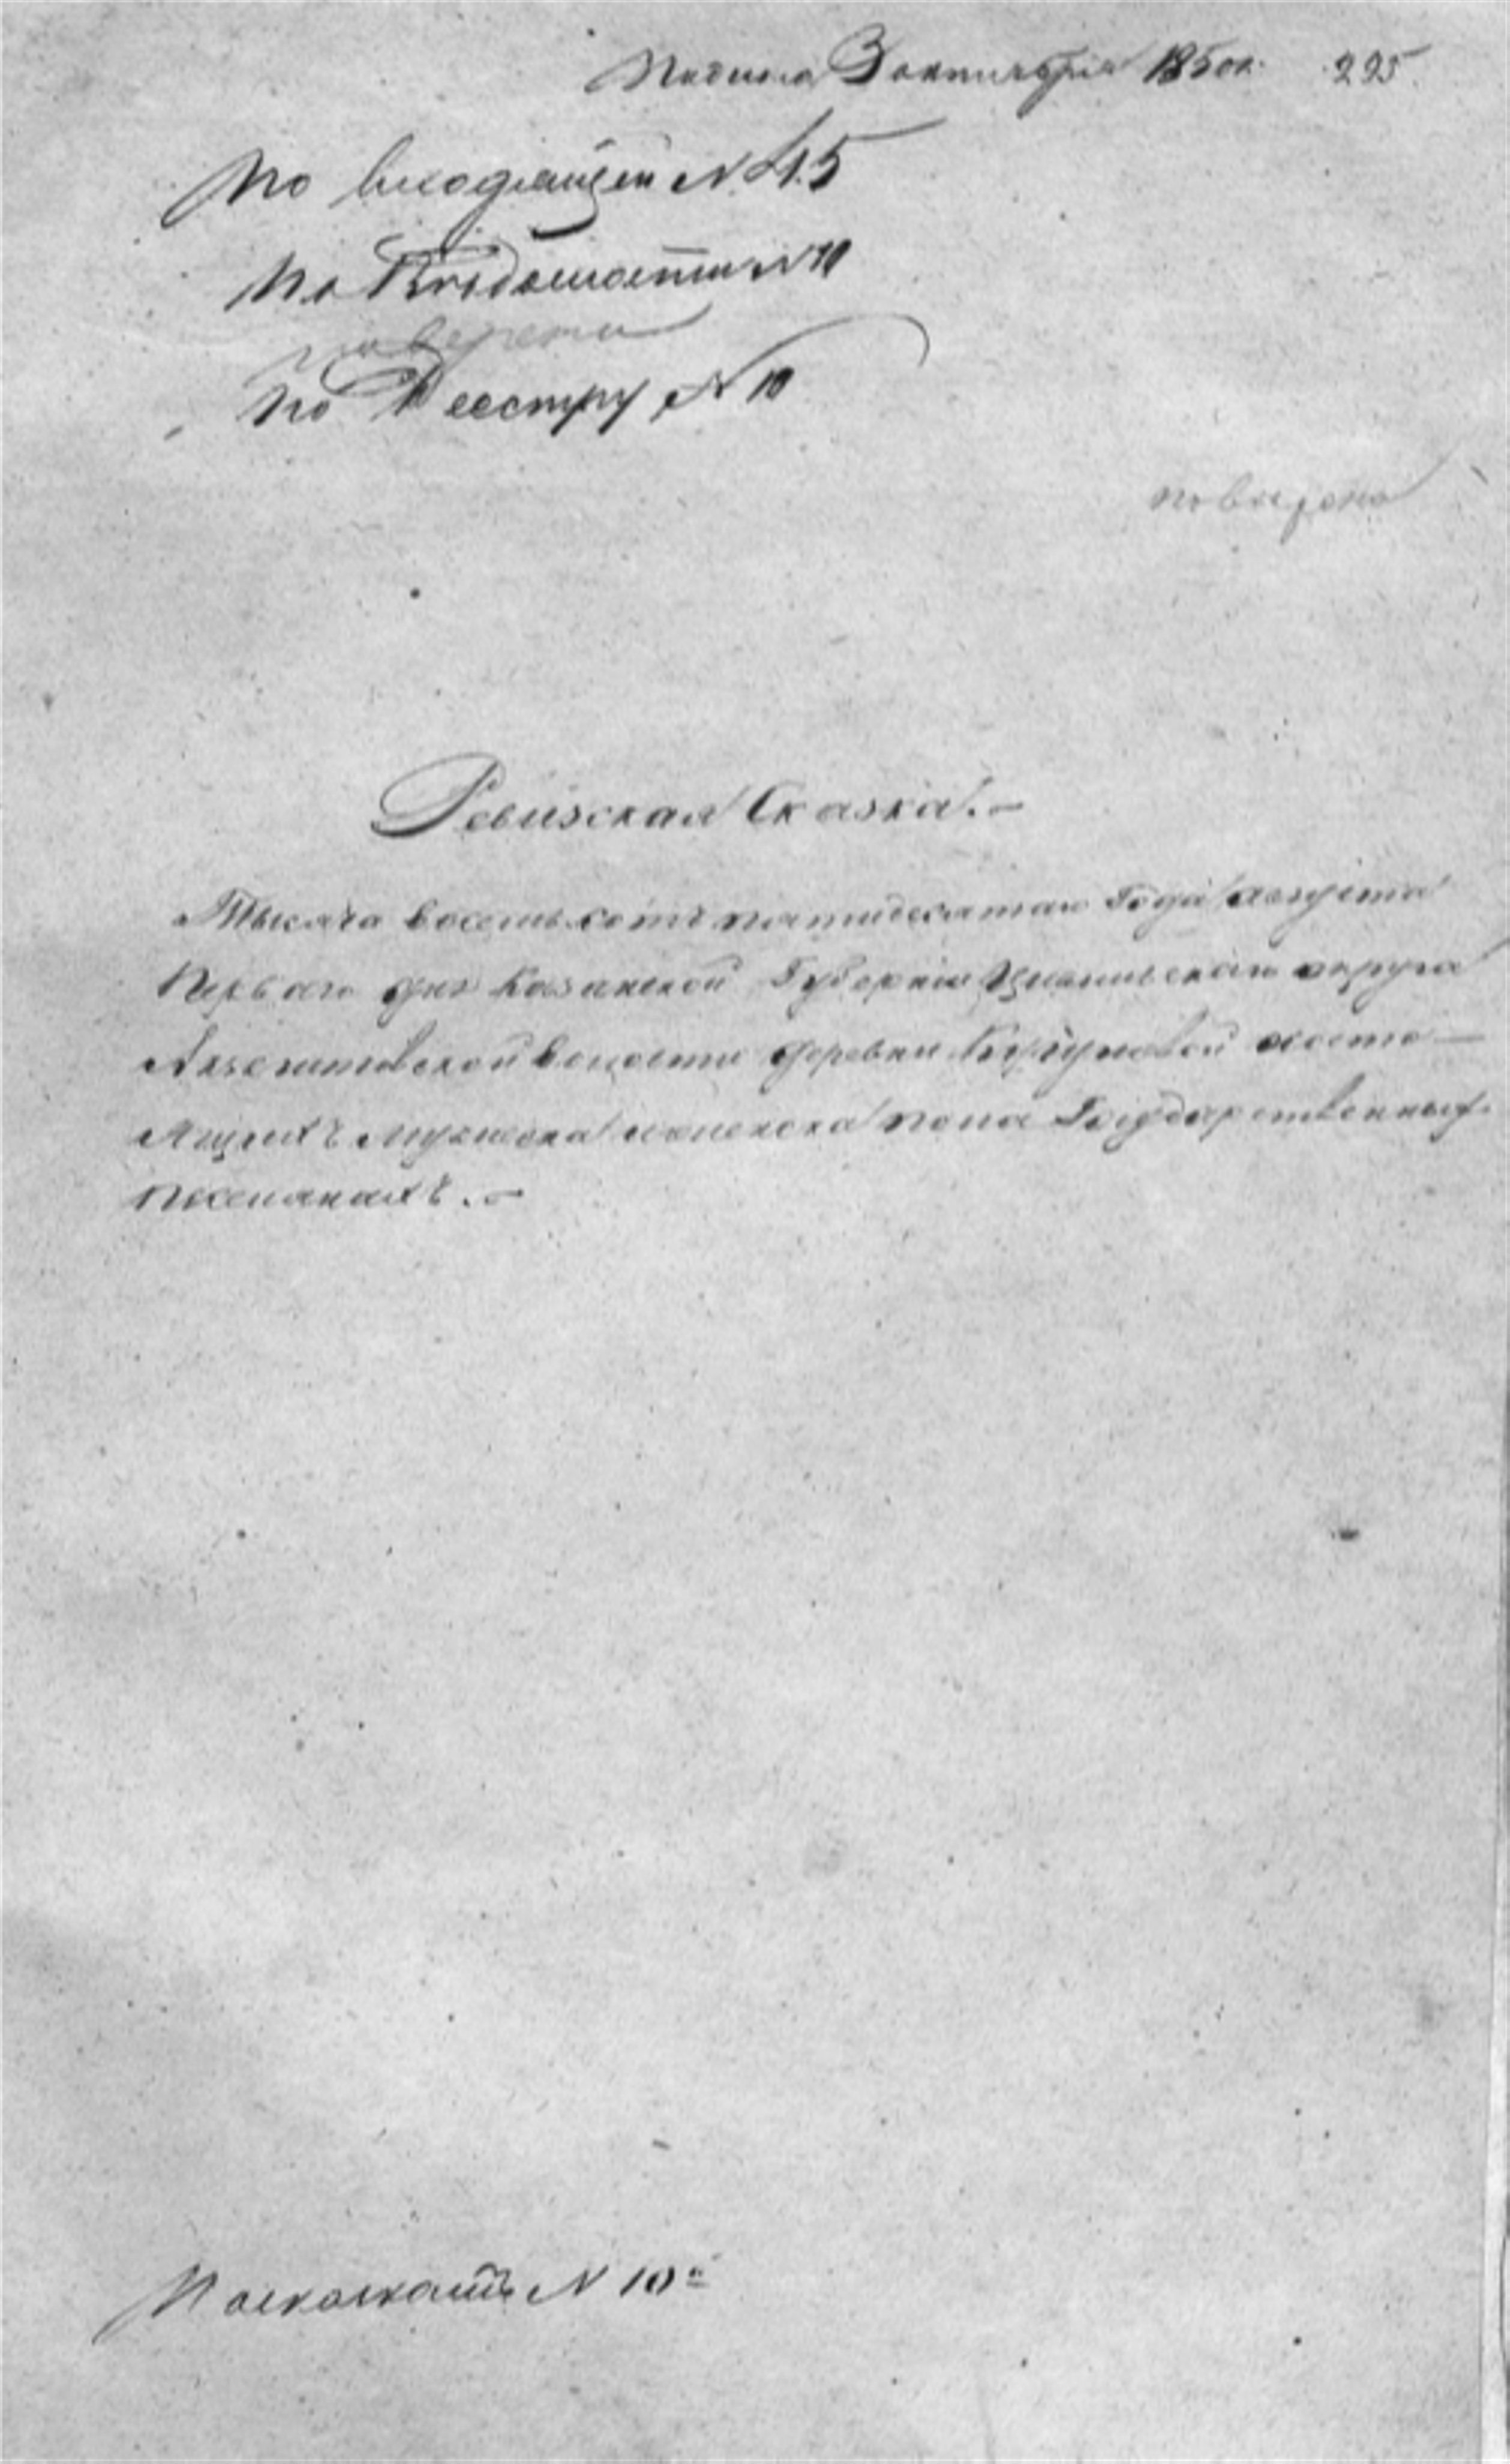 Подана 3 октября 1850 г. 225.
По входящей № 45
По Ведомости № 10
поверена
По Реестру № 10
поверена
Ревизская Сказка.-
Тысяча восемь сотъ пятидесятаго Года Августа
Перваго дня Казанской Губернии Цивильскаго округа
волости деревни состо-
Ящихъ Мужеска и женска пола Государственныхъ
поселянахъ.-
№ 10й